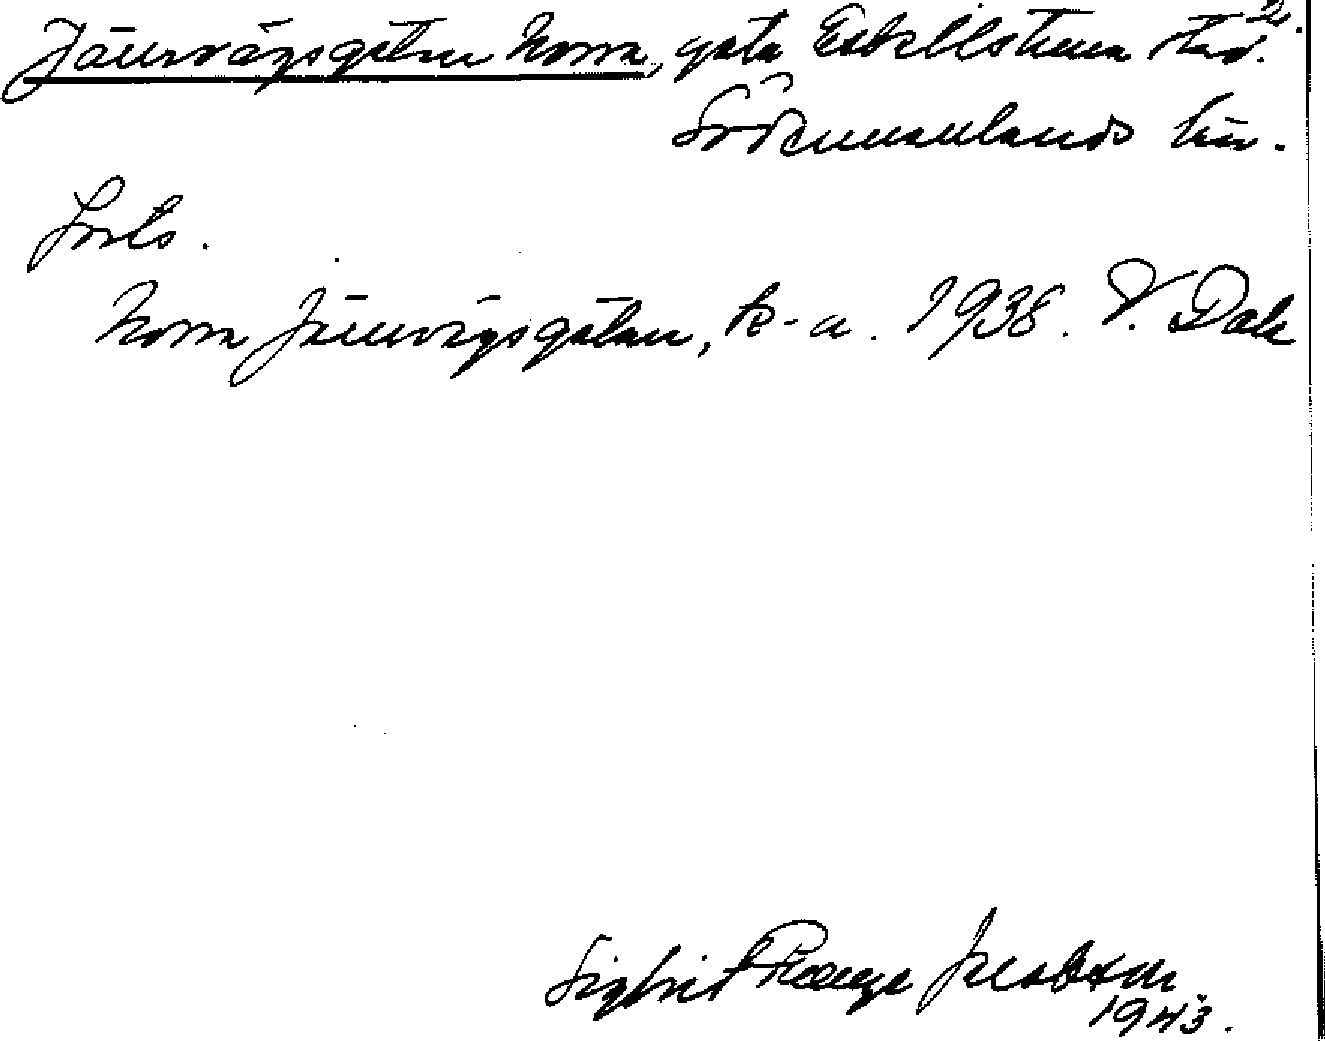 2.
Järnvägsgatan Norra, gata Eskilstuna stad.
Södermanlands län.
Forts.
Norra Järnvägsgatan, k-a. 1938. V. Dale
Sigfrid Ræmge Jacobson
1943.